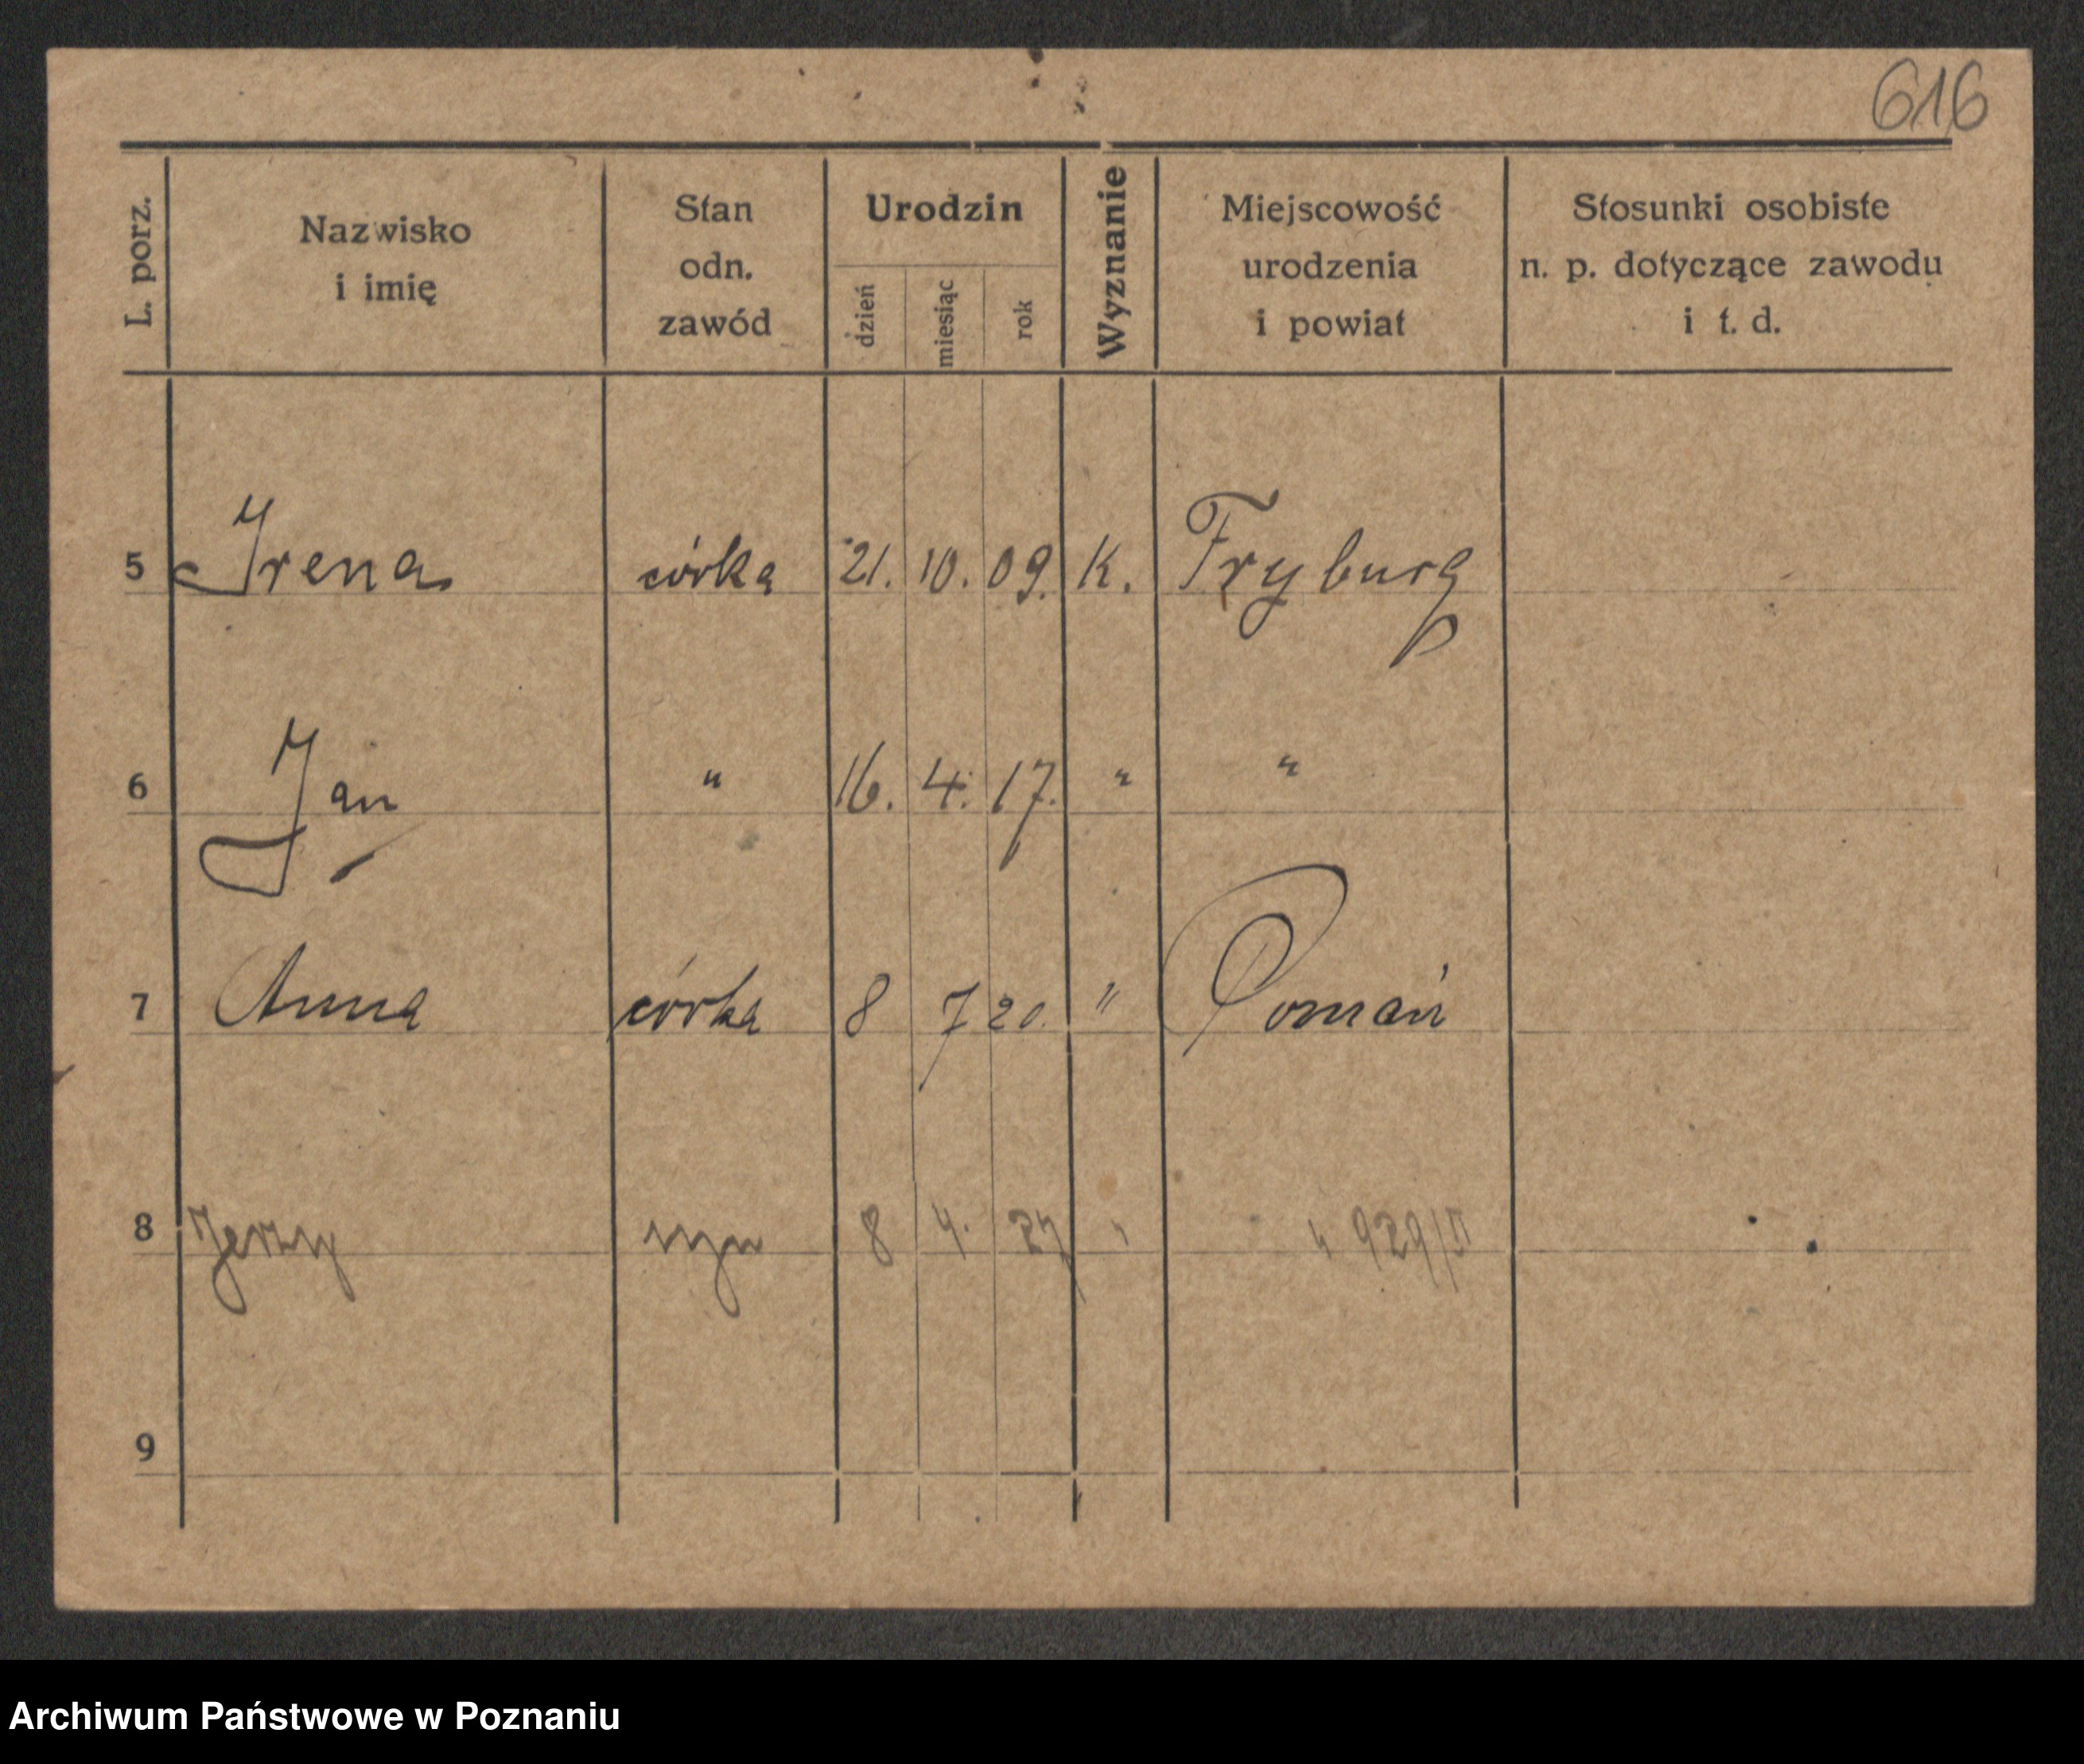 616
L. porz.
Nazwisko
i imię
Stan
odn.
zawód
Urodzin
dzień
miesiąc
rok
Wyznanie
Miejscowość
urodzenia
i powiat
Stosunki osobiste
n. p. dotyczące zawodu
i t. d.
5 Irena córka 21. 10. 09. K. Fryburg
6 Jan " 16. 4. 17. " "
7 Anna córka 8 7 20. " Poznań
8 Jerzy syn 8 4. " " 929/II
9
Archiwum Państwowe w Poznaniu